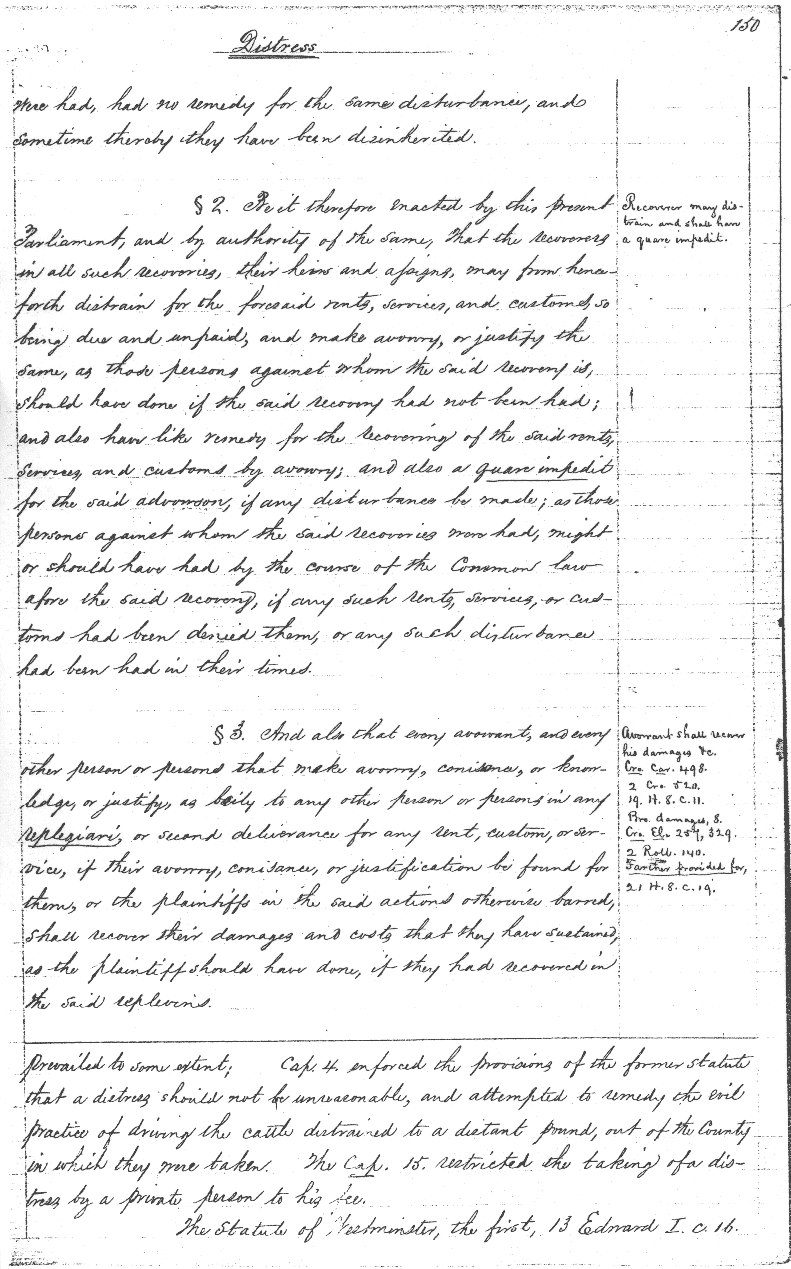 150
Distress
were had, had no remedy for the same disturbance, and
sometime thereby they have been disinherited.
§ 2. Be it therefore enacted by this present
Parliament, and by authority of the same, that the recoverers
in all such recoveries, their heirs and assigns, may from hence-
forth distrain for the foresaid rents, services, and customs, so
being due and unpaid, and make avowry, or justify the
same, as those persons against whom the said recovery is,
should have done if the said recovery had not been had;
and also have like remedy for the recovering of the said rents,
services, and customs by avowry; and also a quare impedit
for the said advowson, if any disturbance be made; as those
persons against whom the said recoveries were had, might
or should have had by the course of the Common law
afore the said recovery, if any such rents, services, or cus-
toms had been denied them, or any such disturbance
had been had in their times.
Recoverer may dis-
train and shall have
a quare impedit.
§ 3. And also that every avowant, and every
other person or persons that make avowry, conisance, or know-
ledge, or justify, as baily to any other person or persons in any
replegiari, or second deliverance for any rent, custom, or ser-
vice, if their avowry, conisance, or justification be found for
them, or the plaintiffs in the said actions otherwise barred,
shall recover their damages and costs that they have sustained,
as the plaintiff should have done, if they had recovered in
the said replevins.
Avowant shall recover
his damages &c.
Cro. Car. 498.
2 Cro. 520.
19. H. 8. C. 11.
Bro. damages, 8.
Cro. El. 257, 329.
2 Roll. 140.
Farther provided for,
21 H. 8. c. 19.
prevailed to some extent; Cap. 4. enforced the provisions of the former statute
that a distress should not be unreasonable, and attempted to remedy the evil
practice of driving the cattle distrained to a distant pound, out of the County
in which they were taken. The Cap. 15. restricted the taking of a dis-
tress by a private person to his fee.
The Statute of Westminster, the first, 13 Edward I. c. 16.